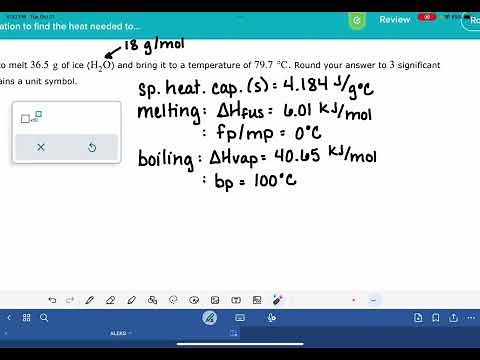 ation to find the heat needed to...
Review
18 g/mol
to melt 36.5 g of ice (H₂O) and bring it to a temperature of 79.7 °C. Round your answer to 3 significant
ains a unit symbol.
sp. heat. cap. (s) = 4.184 J/g°C
melting : ΔHfus = 6.01 kJ/mol
: fp/mp = 0°C
boiling : ΔHvap = 40.65 kJ/mol
: bp = 100°C
x10
ALEKS